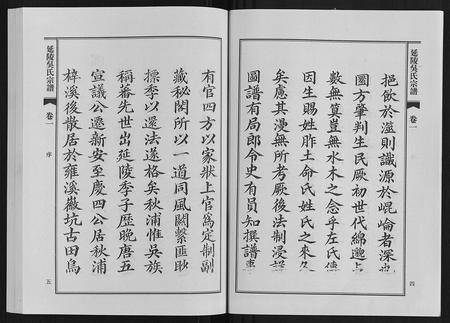 延陵吳氏宗譜
卷一
挹飲於濫則識源於崐崙者深也
圜方肇判生民厥初世代綿邈上
數無冥豈無水木之念乎左氏傳
因生賜姓胙土命氏姓氏之來久
矣慮其漫無所考厥後法制浸
圖譜有局郎令史有員知撰譜事
四
有官四方以家狀上官爲定制副
藏秘閣所以一道同風關繫匪眇
摽季以還法遂格矣秋浦惟吳族
稱蕃先世出延陵季子歷晚唐五
宣議公遷新安至慶四公居秋浦
梓溪後散居於雍溪徽坑古田鳥
延陵吳氏宗譜
卷一
序
五